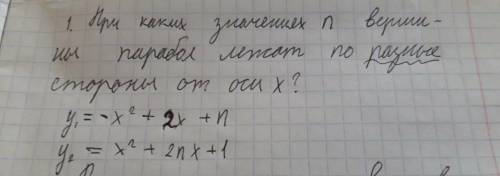 1. При каких значениях n верши-
ны парабол лежат по разные
стороны от оси x?
y₁ = -x² + 2x + n
y₂ = x² + 2nx + 1